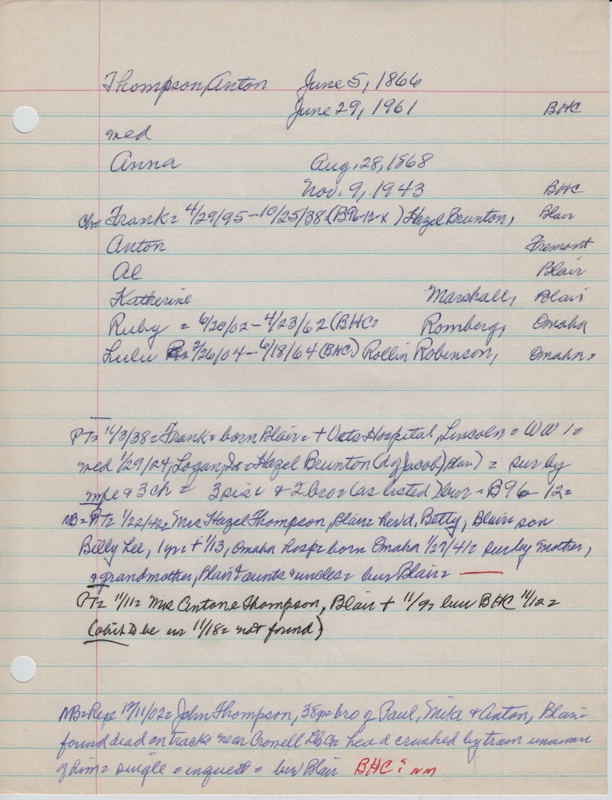 Thompson, Anton June 5, 1866
June 29, 1961 BHC
med
Anna Aug. 28, 1868
Nov. 9, 1943 BHC
ch= Frank= 4/29/95-10/25/38 (B96-12-x) Hazel Brunton, Blair
Anton Fremont
Al Blair
Katherine Marshall, Blair
Ruby = 6/20/02-4/23/62 (BHC= Romberg, Omaha
Lulu = 2/26/04-6/18/64 (BHC) Rollin Robinson, Omaha=
PT= 11/3/38= Frank= born Blair= + Vets Hospital, Lincoln= WW 1=
med 1/29/24, Logan, Ia= Hazel Brunton (d of Jacob) = sur by
& 3 ch= 3 sis & 2 bro= (as listed) bur= B96 12=
NB= PT= 1/22/42= Mrs Hazel Thompson, Blair= Betty, Blair, son
Billy Lee, 1 yr= + 1/13, Omaha hosp= born Omaha 1/27/41= sur by mother,
& grandmother, Blair & aunts & uncles= bur Blair=
PT= 11/11= Mrs Antone Thompson, Blair + 11/9= bur BHC 11/12=
(obit to be in 11/18= not found)
NB= 12/11/02= John Thompson, 35 yr= bro of Paul, Mike & Anton, Blair=
found dead on tracks near Crowell head crushed by train
of him= single= inquest= bur Blair BHC? NM